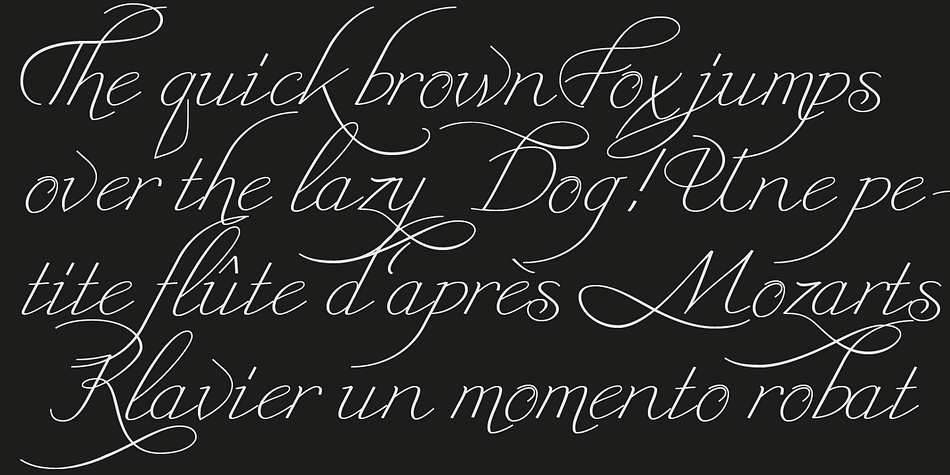 The quick brown Fox jumps
over the lazy Dog! Une pe-
tite flûte d'après Mozarts
Klavier un momento robat